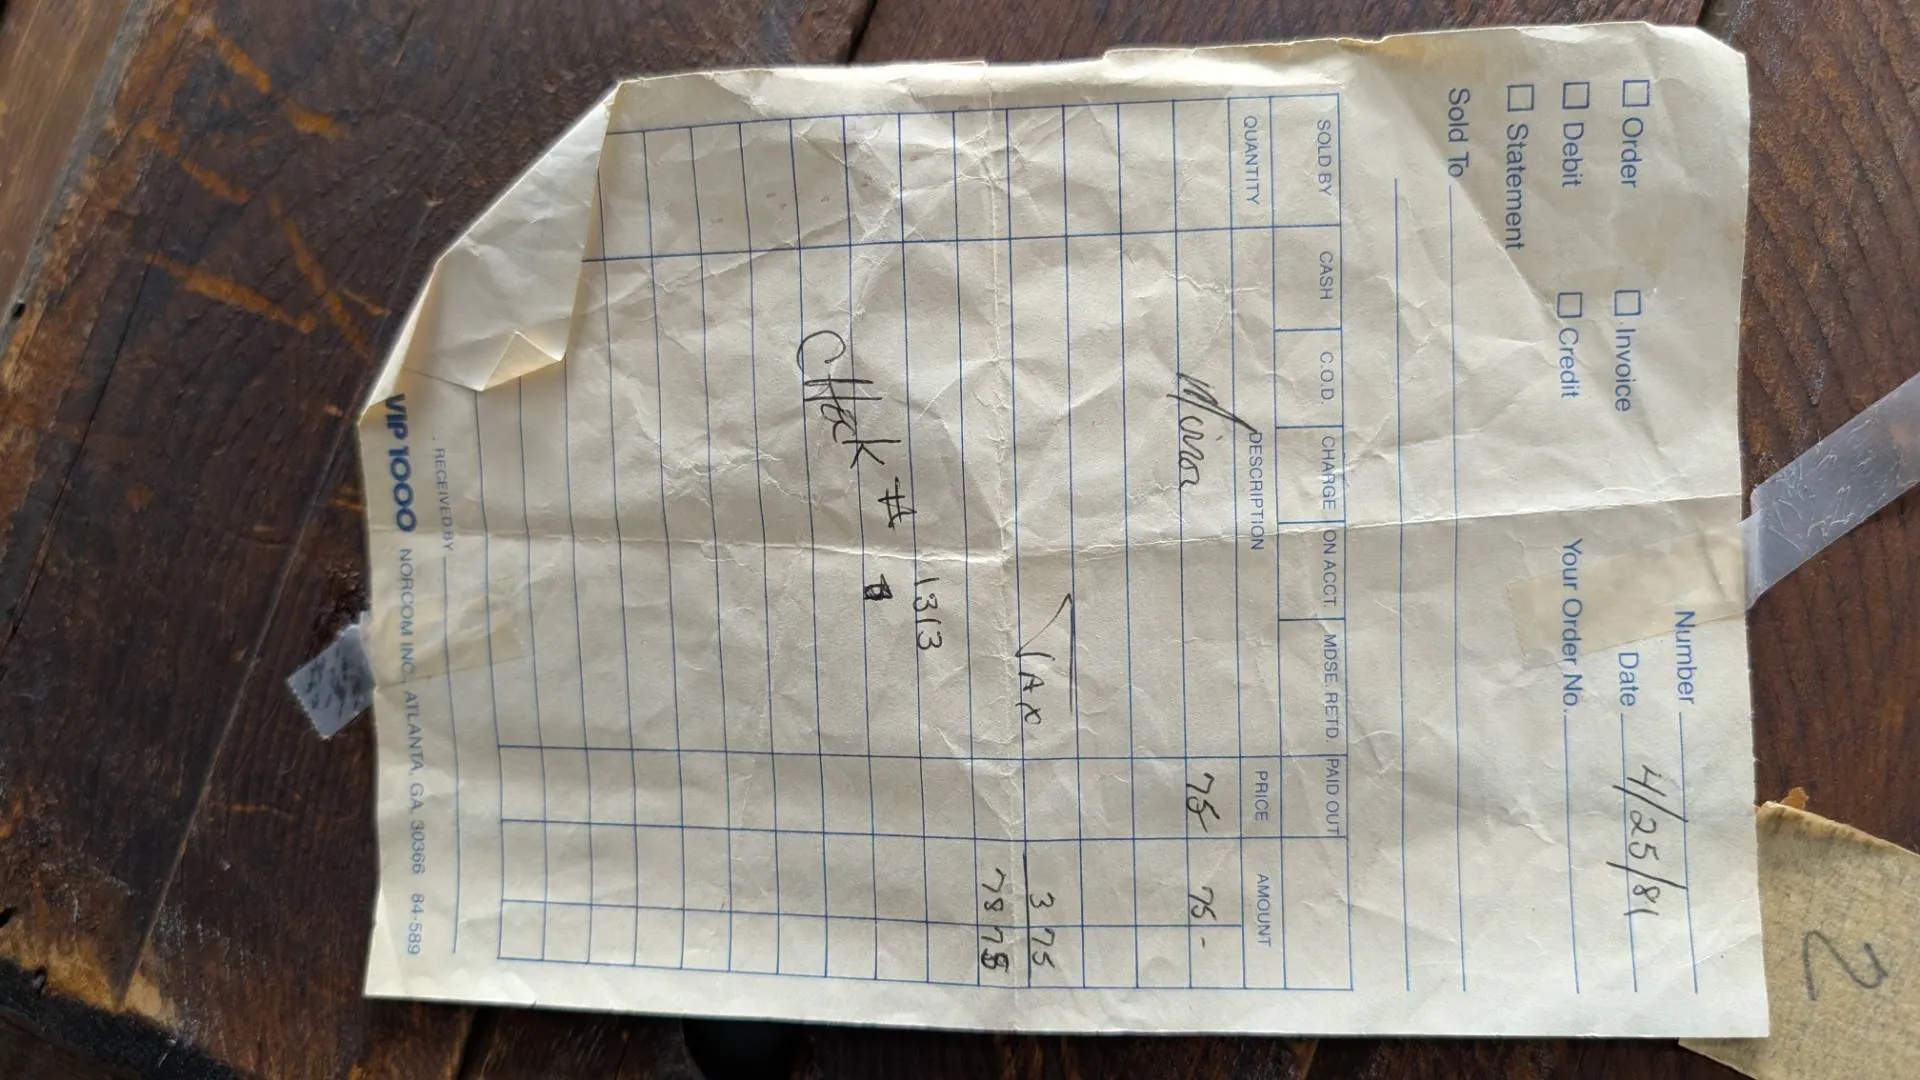 Number
☐ Order ☐ Invoice Date 4/25/81
☐ Debit ☐ Credit Your Order No.
☐ Statement
Sold To
SOLD BY CASH C.O.D. CHARGE ON ACCT. MDSE. RETD. PAID OUT
QUANTITY DESCRIPTION PRICE AMOUNT
Mirror 75 75 -
TAX 3 75
78 75
1313
CHecK #
RECEIVED BY
VIP 1000 NORCOM INC., ATLANTA, GA. 30366 84-589
2